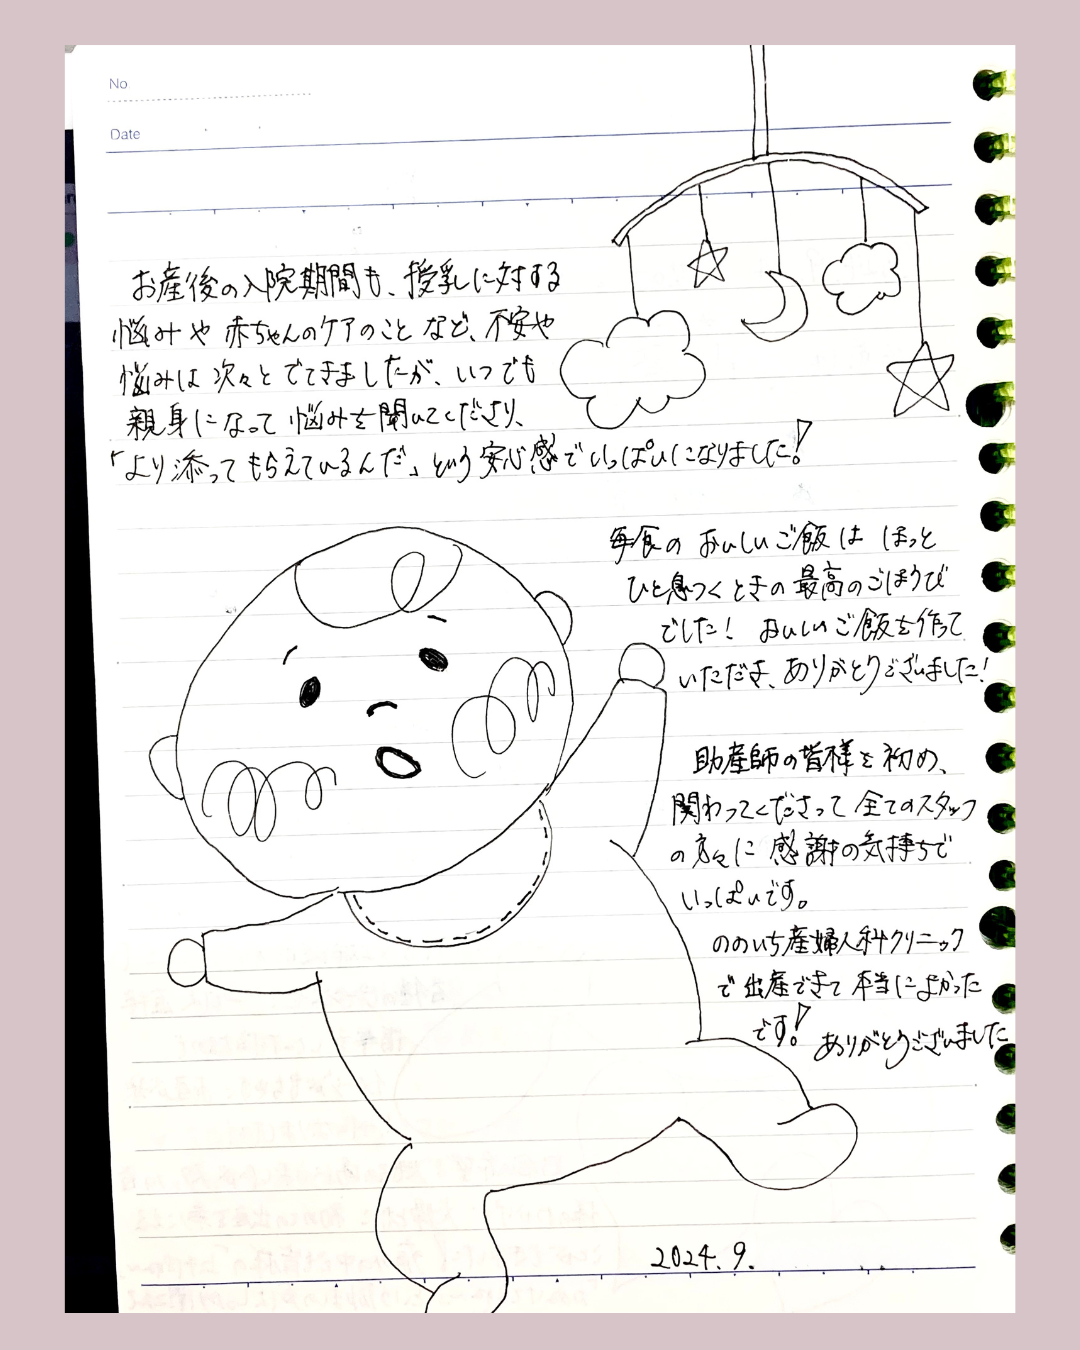 No
Date
お産後の入院期間も、授乳に対する
悩みや赤ちゃんのケアのことなど、不安や
悩みは次々とでてきましたが、いつでも
親身になって悩みを聞いてくださり、
「より添ってもらえているんだ」という安心感でいっぱいになりました!
毎食のおいしいご飯はほっと
ひと息つくときの最高のごほうび
でした! おいしいご飯を作って
いただき、ありがとうございました!
助産師の皆様を初め、
関わってくださって全てのスタッフ
の方々に感謝の気持ちで
いっぱいです。
ののいち産婦人科クリニック
で出産できて本当によかった
です! ありがとうございました
2024.9.